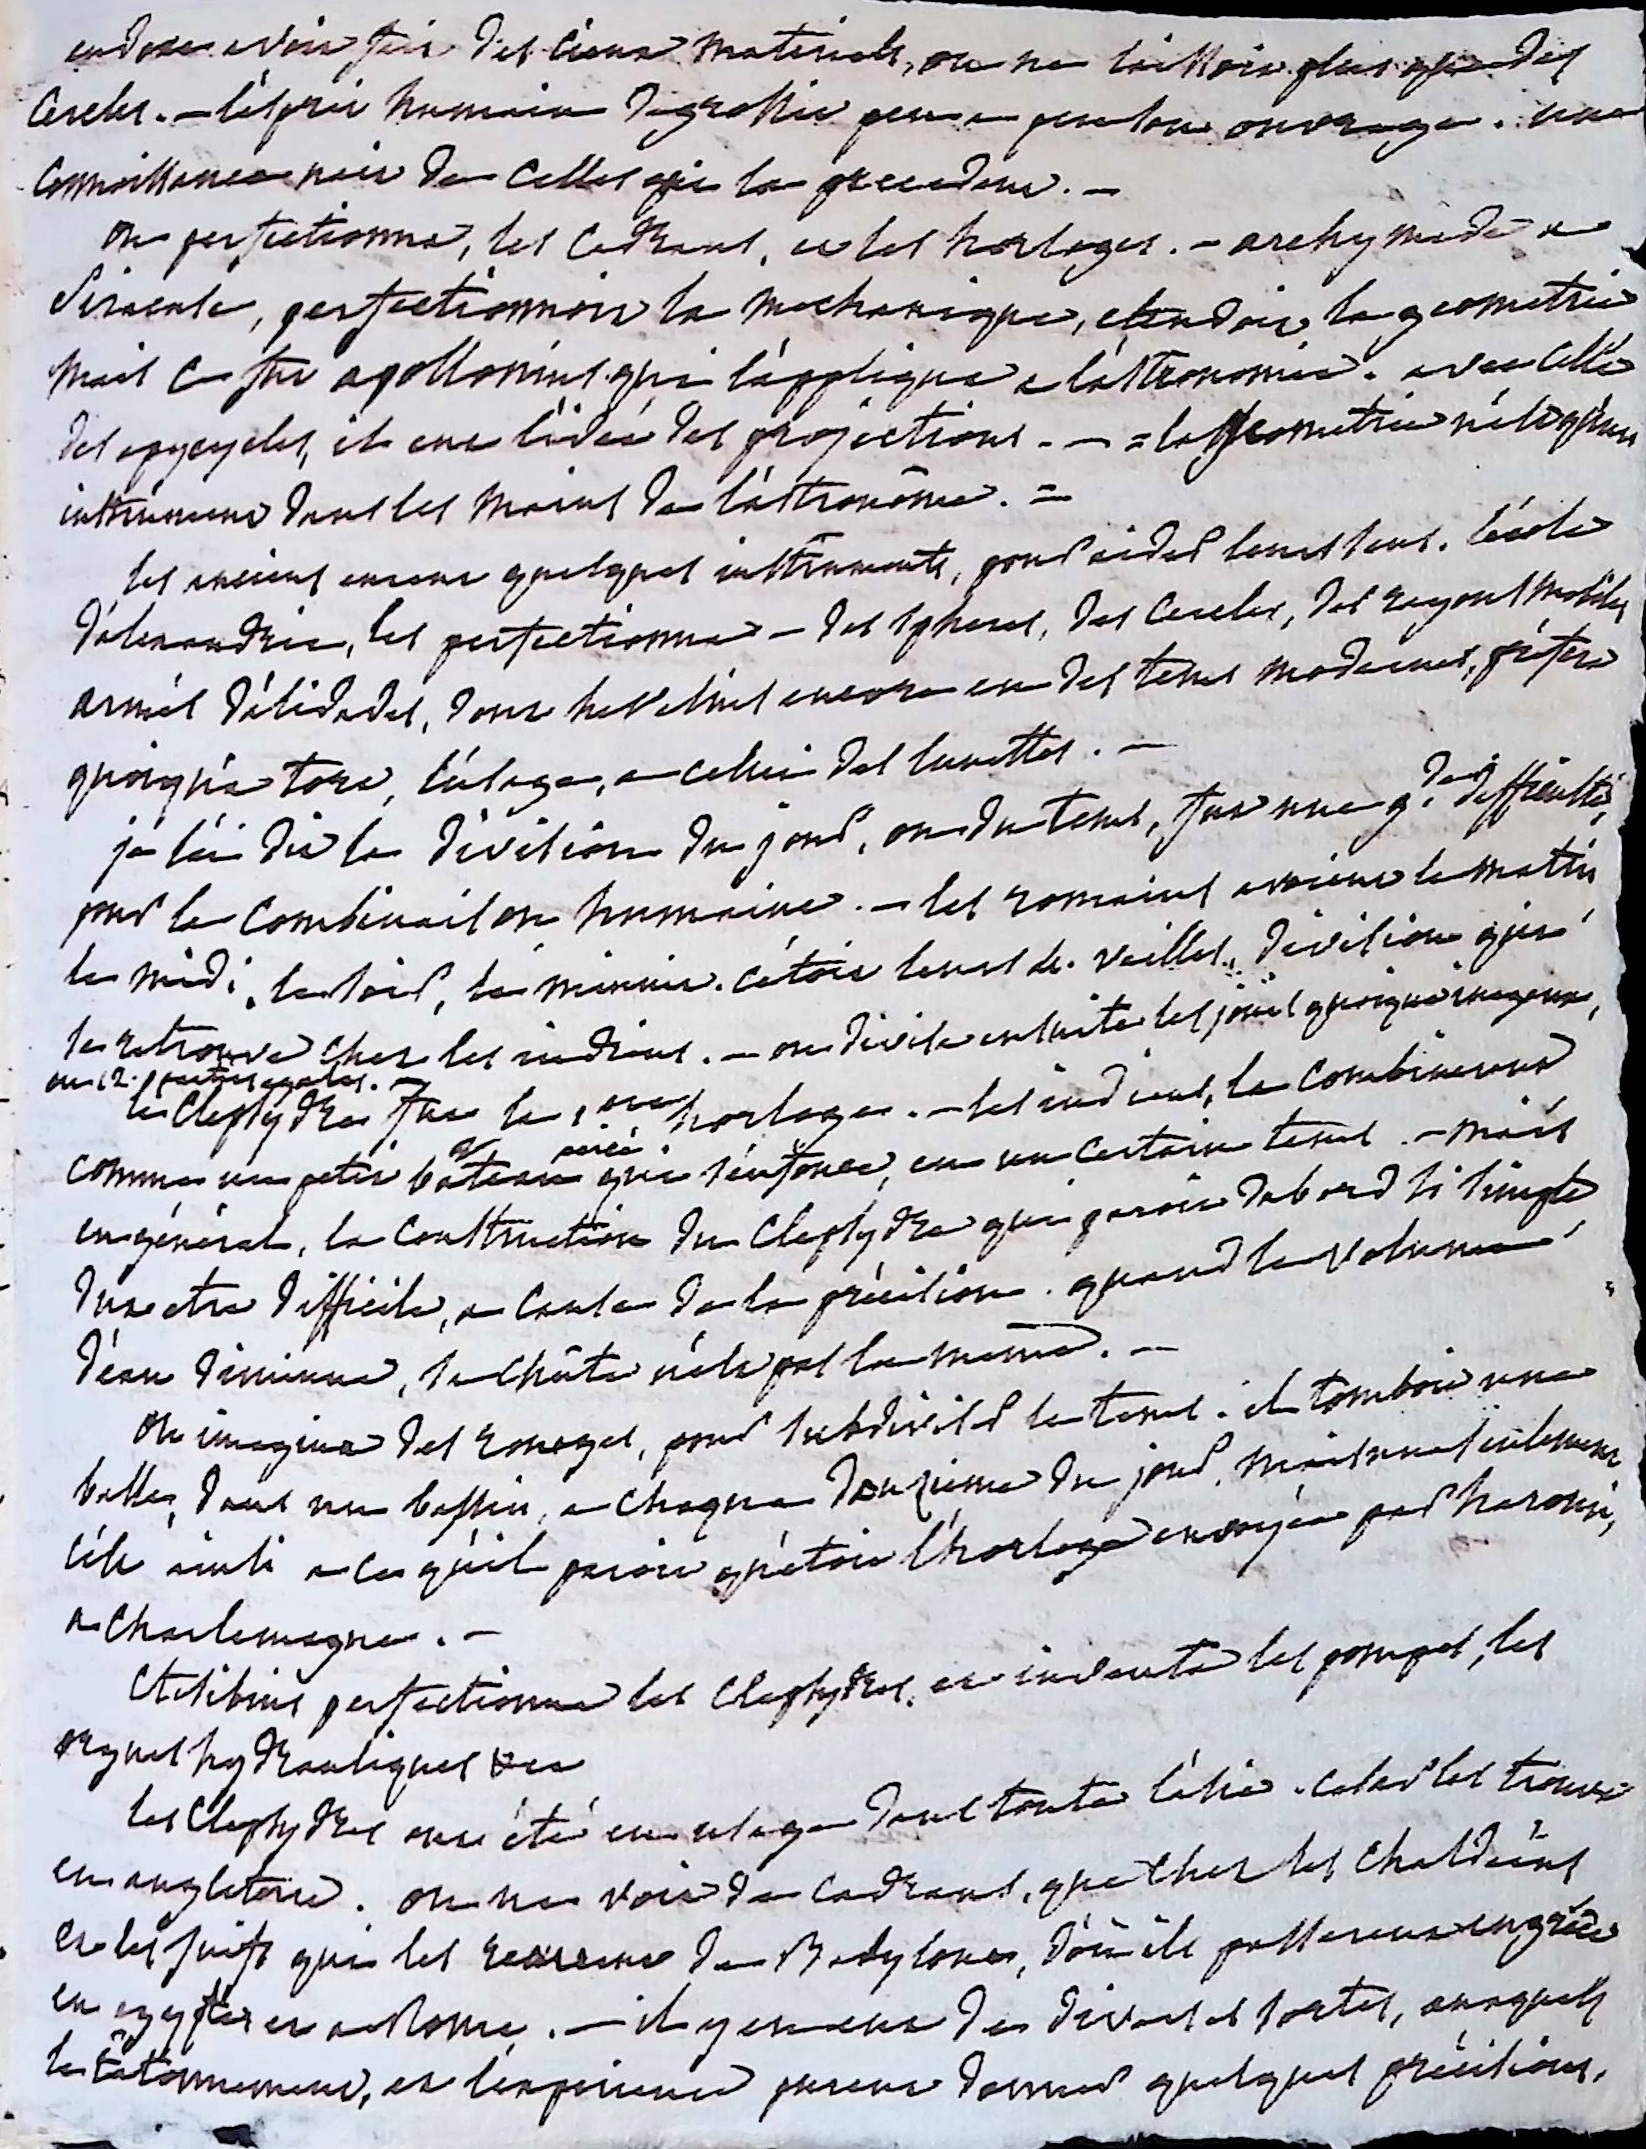 on dosa avoir fair des cieux materiels, on ne laissoit plus que des
cercles. — l'esprit humain degrossit peu a peu son ouvrage. une
connoissance nait de celles qui la precedent. —
on perfectionna, les cadrans, et les horloges. — archymede a
Siracuse, perfectionnoit la mechanique, etendoit la geometrie
mais ce fut apollonius qui l'appliqua a l'astronomie. avec celle
des epycycles, il eut l'idée des projections. — = la geometrie n'est qu'un
instrument dans les mains de l'astronome. =
les anciens eurent quelques instruments, pour aider leurs sens. l'école
d'alexandrie, les perfectionna — des spheres, des cercles, des rayons mobiles
armés d'alidades, dont hevelius encore en des tems modernes, préfera
quoiqu'a tort, l'usage, a celui des lunettes. —
je l'ai dit la division du jour, ou du tems, fut une g.de difficulté,
pour la combinaison humaine. — les romains avoient le matin
le midi, le soir, le minuit. c'étoit leurs 4. veilles, division qui
se retrouve chez les indiens. — on divisa ensuite les jours quoique inegaux,
en 12. parties egales. —
le clepsydre fut la 1.ere horloge. — les indiens, la combinerent
comme un petit bateau percé qui s'enfonce, en un certain tems. — mais
en général, la construction du clepsydre qui paroit d'abord si simple
dut etre difficile, a cause de la précision. quand le volume
d'eau diminue, sa chûte n'est pas la meme. —
on imagina des rouages, pour subdiviser le tems. il tomboit une
balle, dans un bassin, a chaque douzieme du jour, mais une seulement
c'est ainsi a ce qu'il paroit qu'étoit l'horloge envoyée par haroun,
a charlemagne. —
Ctesibius perfectionna les clepsydres, et inventa les pompes, les
orgues hydrauliques &ca
les clepsydres ont été en usage dans toute l'asie. cesar les trouva
en angleterre. on ne voit de cadrans, que chez les chaldéens
et les juifs qui les reçurent de Babylone, d'où ils passerent en grèce
en egypte et a Rome. — il y en eut de diverses sortes, auxquels
le tâtonnement, et l'experience purent donner quelques précisions.